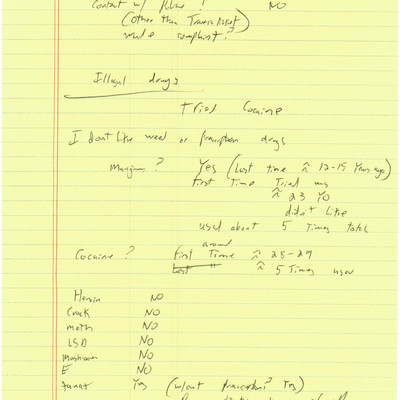 Contact w/ Police? NO
(Other than Traffic
male complaint?
Illegal drugs
Tried Cocaine
I dont like weed or prescription drugs
Marijuana? Yes (Last time ~ 12-15 years ago)
First Time Tried was
~ 23 YO
didn't like
used about 5 Times total
around
Cocaine? First Time ~ 28-29
Last ~ 5 Times used
Heroin NO
Crack NO
meth NO
LSD NO
Mushroom NO
E NO
Yes (w/out prescription? Yes)